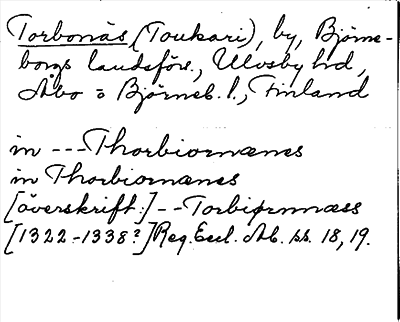 Torbonäs (Toukari), by, Björne-
borgs landsförs., Ulvsby hd,
Åbo o Björneb. l., Finland
in --- Thorbiornænes
in Thorbiornænes
[överskrift:] -- Torbiørnnæss
[1322-1338?] Reg. Eccl. Ab. ss. 18, 19.